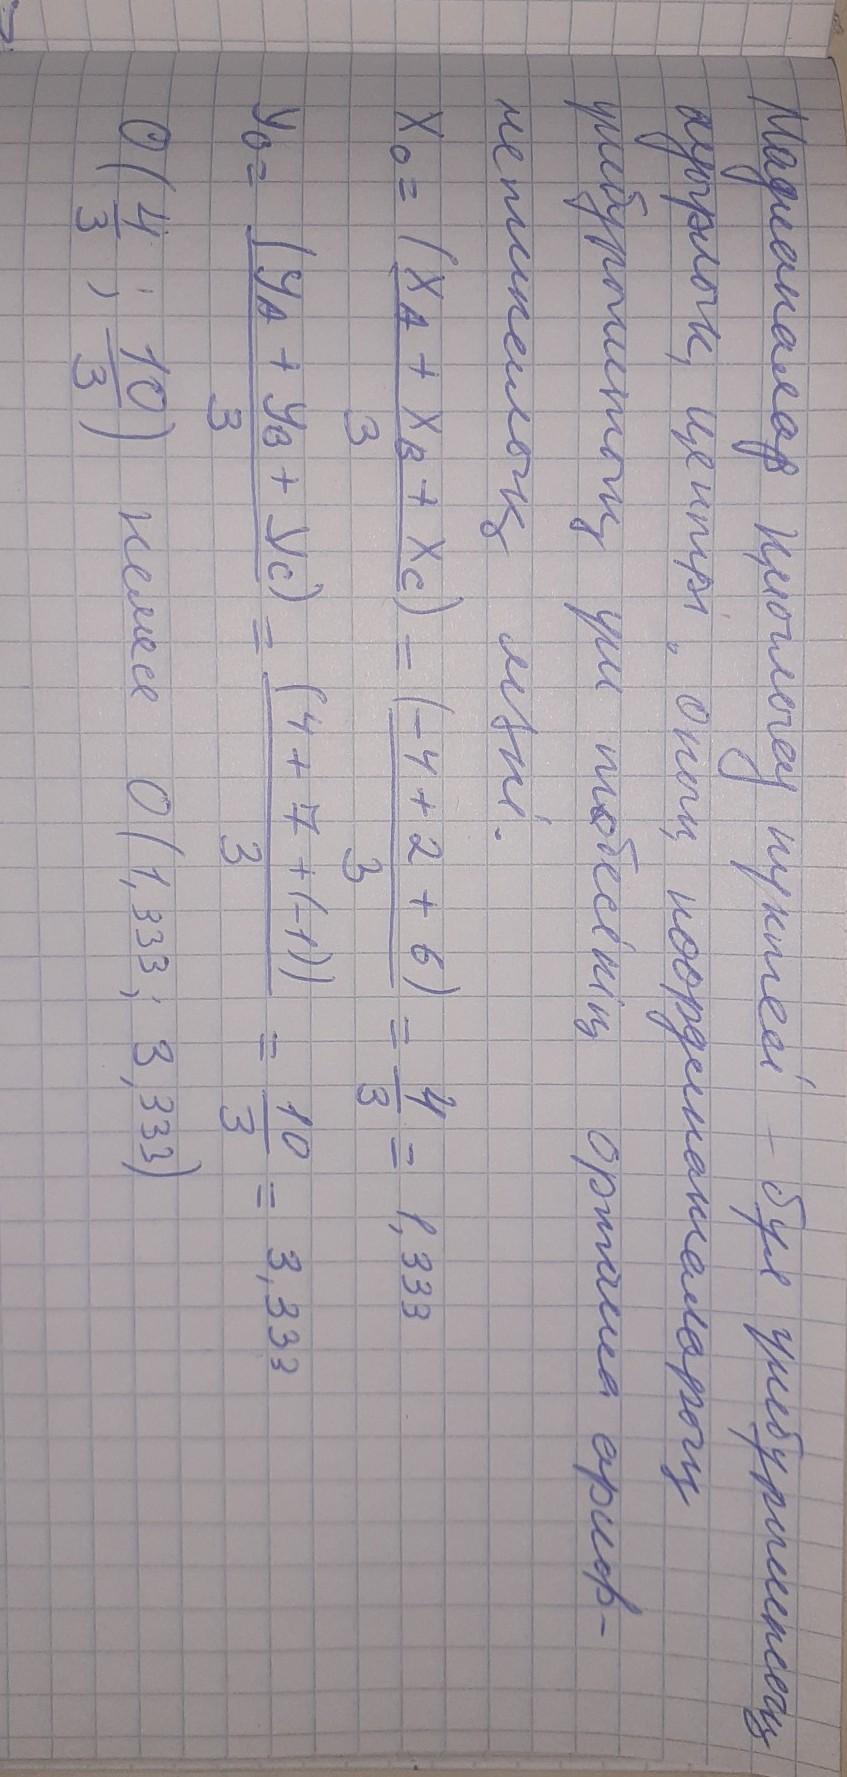 Медианалар қиылысу нүктесі - бұл үшбұрыштың
ауырлық центрі, оның координаталары
үшбұрыштың үш төбесінің орташа ариф-
метикалық мәні.
X₀ = (X_A + X_B + X_C)/3 = (-4 + 2 + 6)/3 = 4/3 = 1,333
Y₀ = (Y_A + Y_B + Y_C)/3 = (4 + 7 + (-1))/3 = 10/3 = 3,333
O(4/3; 10/3) немесе O(1,333; 3,333)